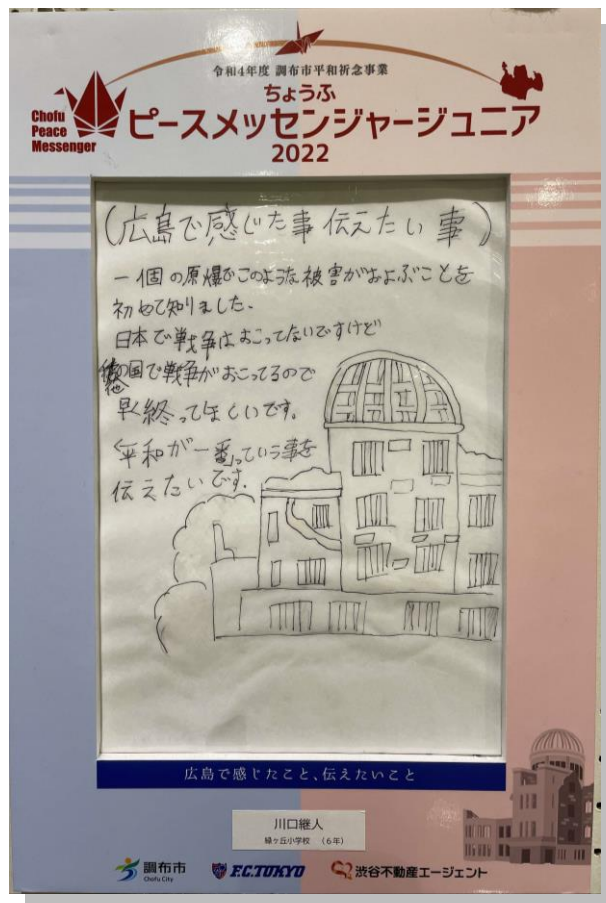 令和4年度 調布市平和祈念事業
ちょうふ
Chofu
Peace
Messenger
ピースメッセンジャージュニア
2022
(広島で感じた事 伝えたい事)
一個の原爆でこのような被害がおよぶことを
初めて知りました.
日本で戦争はおこってないですけど
他の国で戦争がおこってるので
早く終ってほしいです。
「平和が一番」っていう事を
伝えたいです.
広島で感じたこと、伝えたいこと
川口継人
緑ヶ丘小学校 (6年)
調布市
Chofu City
F.C.TOKYO
渋谷不動産エージェント